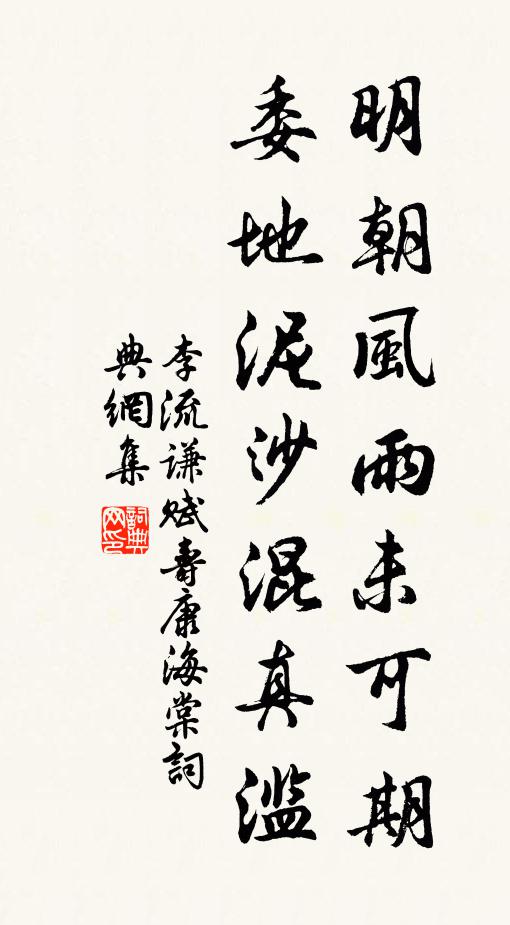 明朝風雨未可期
委地泥沙混真濫
李流谦赋壽康海棠詞
典網集
詞典
网印